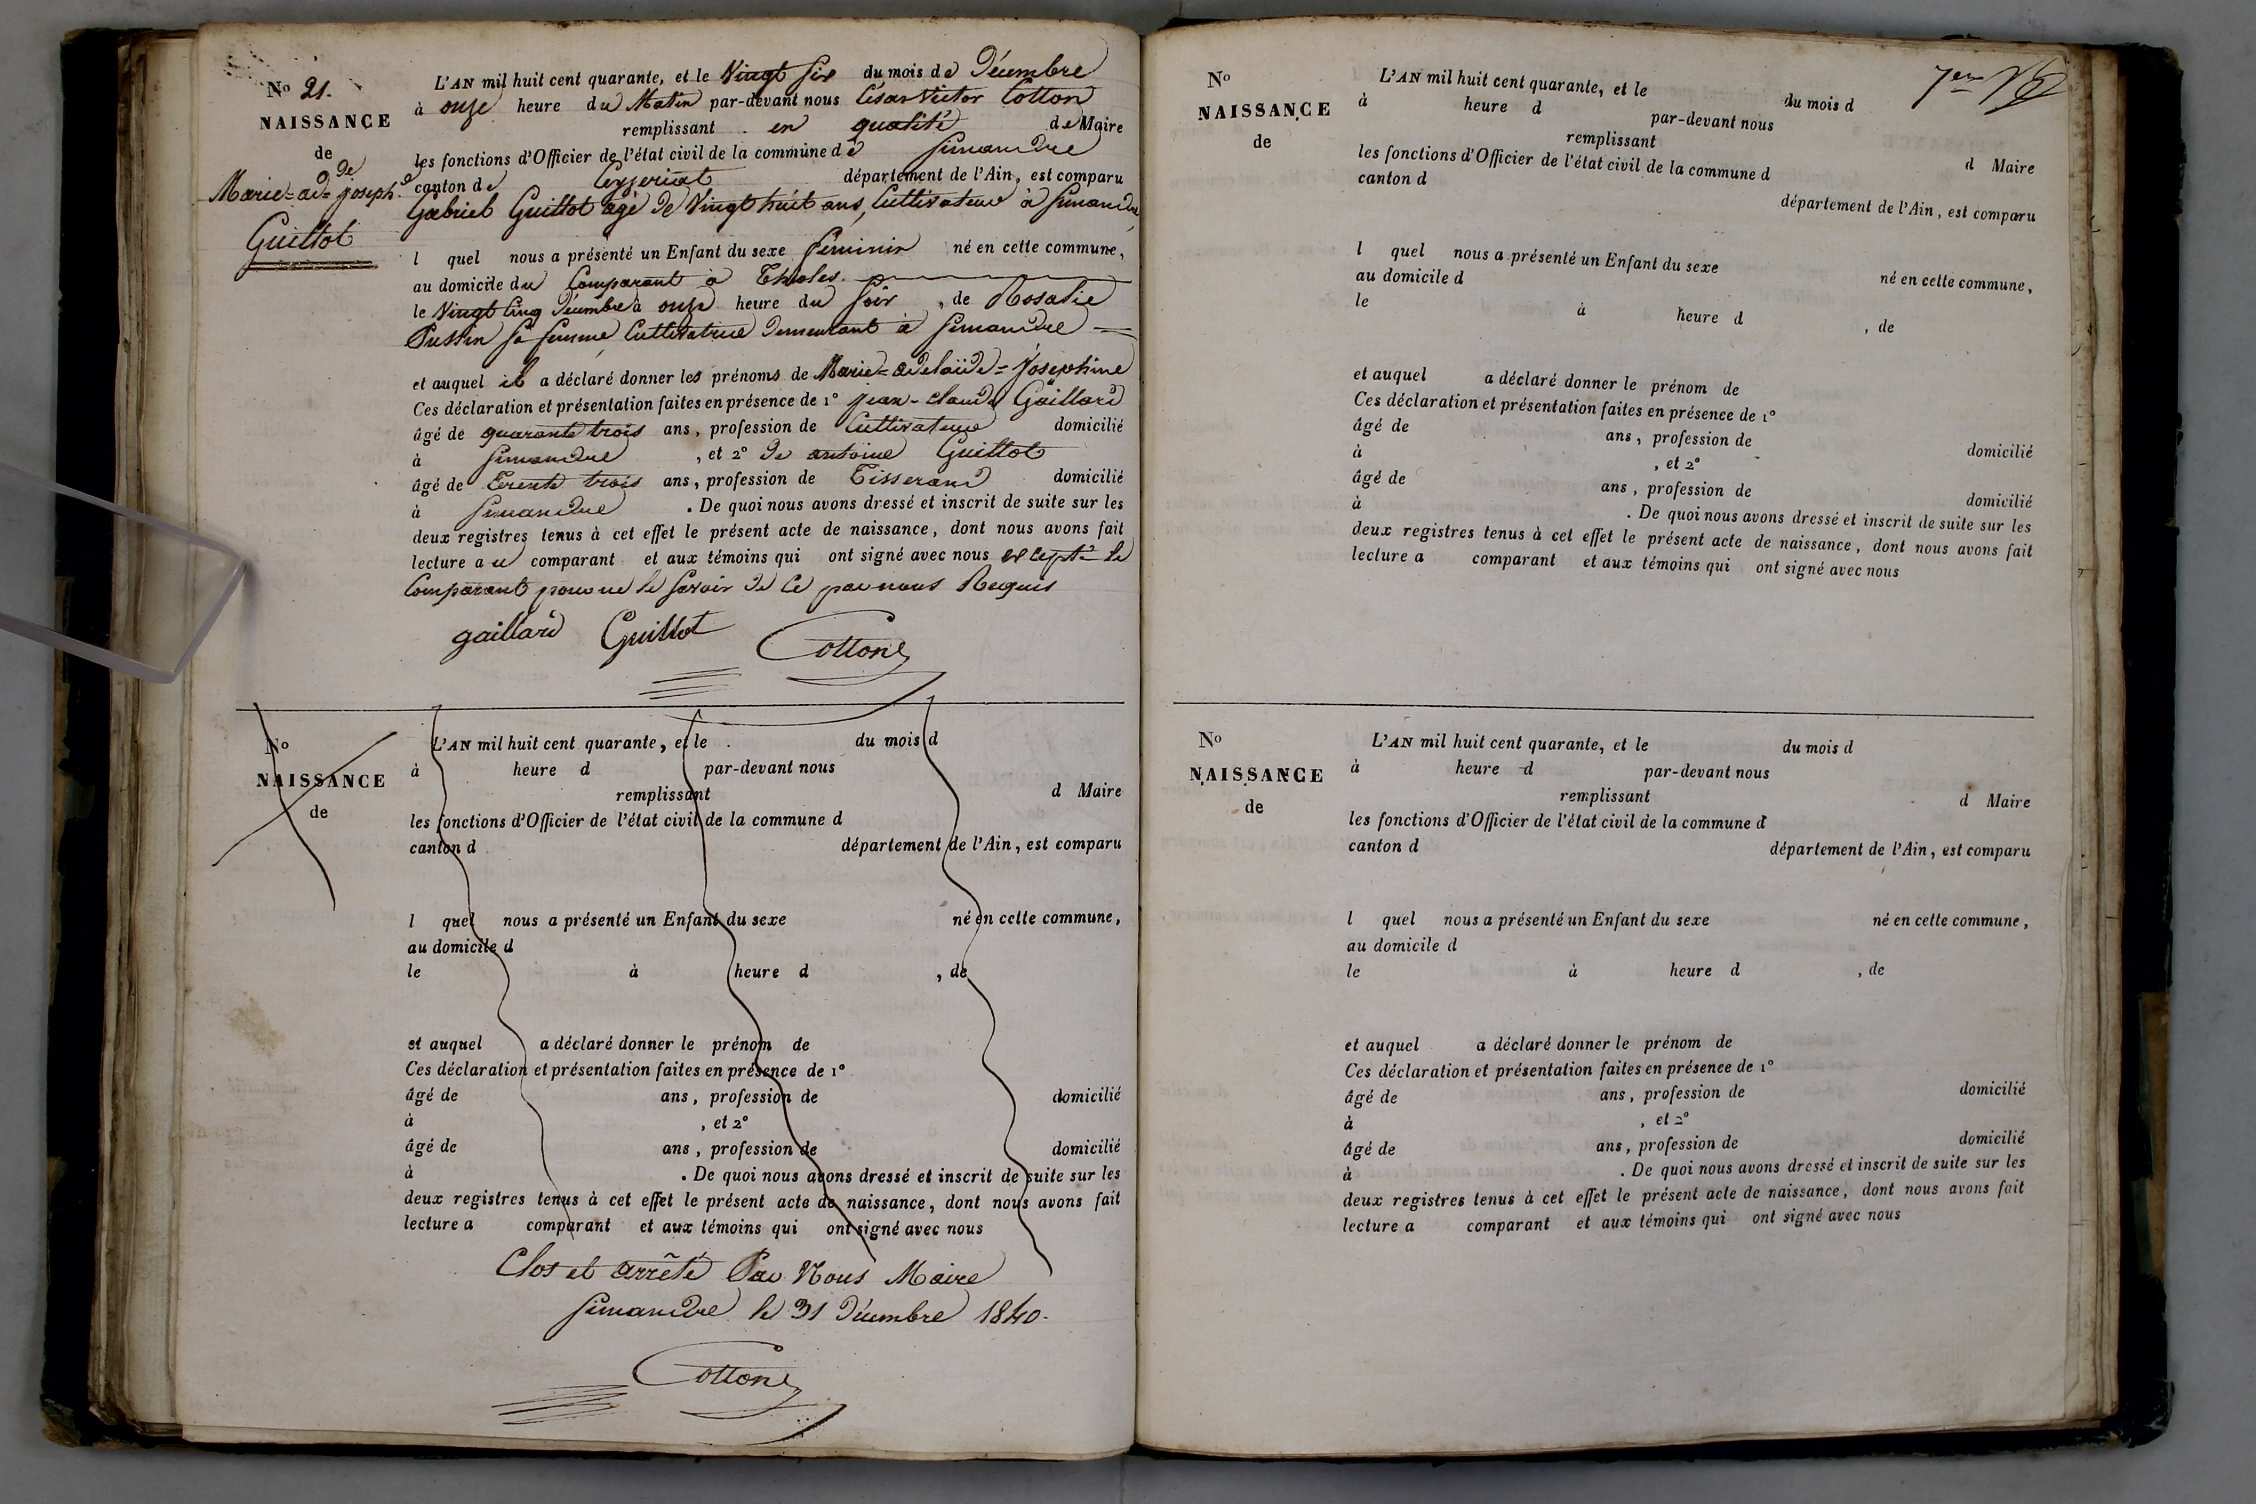 No 21.
NAISSANCE
de
Marie-ade-josephe
Guillot
L'AN mil huit cent quarante, et le Vingt six du mois de Décembre
à onze heure du Matin par-devant nous César Victor Cotton
remplissant en qualité de Maire
les fonctions d'Officier de l'état civil de la commune de Simandre
canton de Ceyzeriat département de l'Ain, est comparu
Gabriel Guillot agé de Vingt huit ans, Cultivateur à Simandre
l quel nous a présenté un Enfant du sexe féminin né en cette commune,
au domicile du Comparant à Thioles
le Vingt Cinq Décembre à onze heure du soir, de Rosalie
sa femme Cultivatrice demeurant à Simandre
et auquel il a déclaré donner les prénoms de Marie=adelaïde=Joséphine
Ces déclaration et présentation faites en présence de 1° jean-claude Gaillard
âgé de quarante trois ans, profession de Cultivateur domicilié
à Simandre, et 2° de antoine Guillot
âgé de trente trois ans, profession de Tisserand domicilié
à Simandre. De quoi nous avons dressé et inscrit de suite sur les
deux registres tenus à cet effet le présent acte de naissance, dont nous avons fait
lecture au comparant et aux témoins qui ont signé avec nous excepté le
Comparant pour ne le savoir de ce par nous Requis
gaillard Guillot Cotton
No
NAISSANCE
de
L'AN mil huit cent quarante, et le du mois d
à heure d par-devant nous
remplissant d Maire
les fonctions d'Officier de l'état civil de la commune d
canton d département de l'Ain, est comparu
l quel nous a présenté un Enfant du sexe né en cette commune,
au domicile d
le à heure d , de
et auquel a déclaré donner le prénom de
Ces déclaration et présentation faites en présence de 1°
âgé de ans, profession de domicilié
à , et 2°
âgé de ans, profession de domicilié
à . De quoi nous avons dressé et inscrit de suite sur les
deux registres tenus à cet effet le présent acte de naissance, dont nous avons fait
lecture a comparant et aux témoins qui ont signé avec nous
Clos et arrêté Par Nous Maire
Simandre le 31 Décembre 1840.
Cotton
No
NAISSANCE
de
L'AN mil huit cent quarante, et le du mois d
à heure d par-devant nous
remplissant d Maire
les fonctions d'Officier de l'état civil de la commune d
canton d département de l'Ain, est comparu
l quel nous a présenté un Enfant du sexe né en cette commune,
au domicile d
le à heure d , de
et auquel a déclaré donner le prénom de
Ces déclaration et présentation faites en présence de 1°
âgé de ans, profession de domicilié
à , et 2°
âgé de ans, profession de domicilié
à . De quoi nous avons dressé et inscrit de suite sur les
deux registres tenus à cet effet le présent acte de naissance, dont nous avons fait
lecture a comparant et aux témoins qui ont signé avec nous
No
NAISSANCE
de
L'AN mil huit cent quarante, et le du mois d
à heure d par-devant nous
remplissant d Maire
les fonctions d'Officier de l'état civil de la commune d
canton d département de l'Ain, est comparu
l quel nous a présenté un Enfant du sexe né en cette commune,
au domicile d
le à heure d , de
et auquel a déclaré donner le prénom de
Ces déclaration et présentation faites en présence de 1°
âgé de ans, profession de domicilié
à , et 2°
âgé de ans, profession de domicilié
à . De quoi nous avons dressé et inscrit de suite sur les
deux registres tenus à cet effet le présent acte de naissance, dont nous avons fait
lecture a comparant et aux témoins qui ont signé avec nous